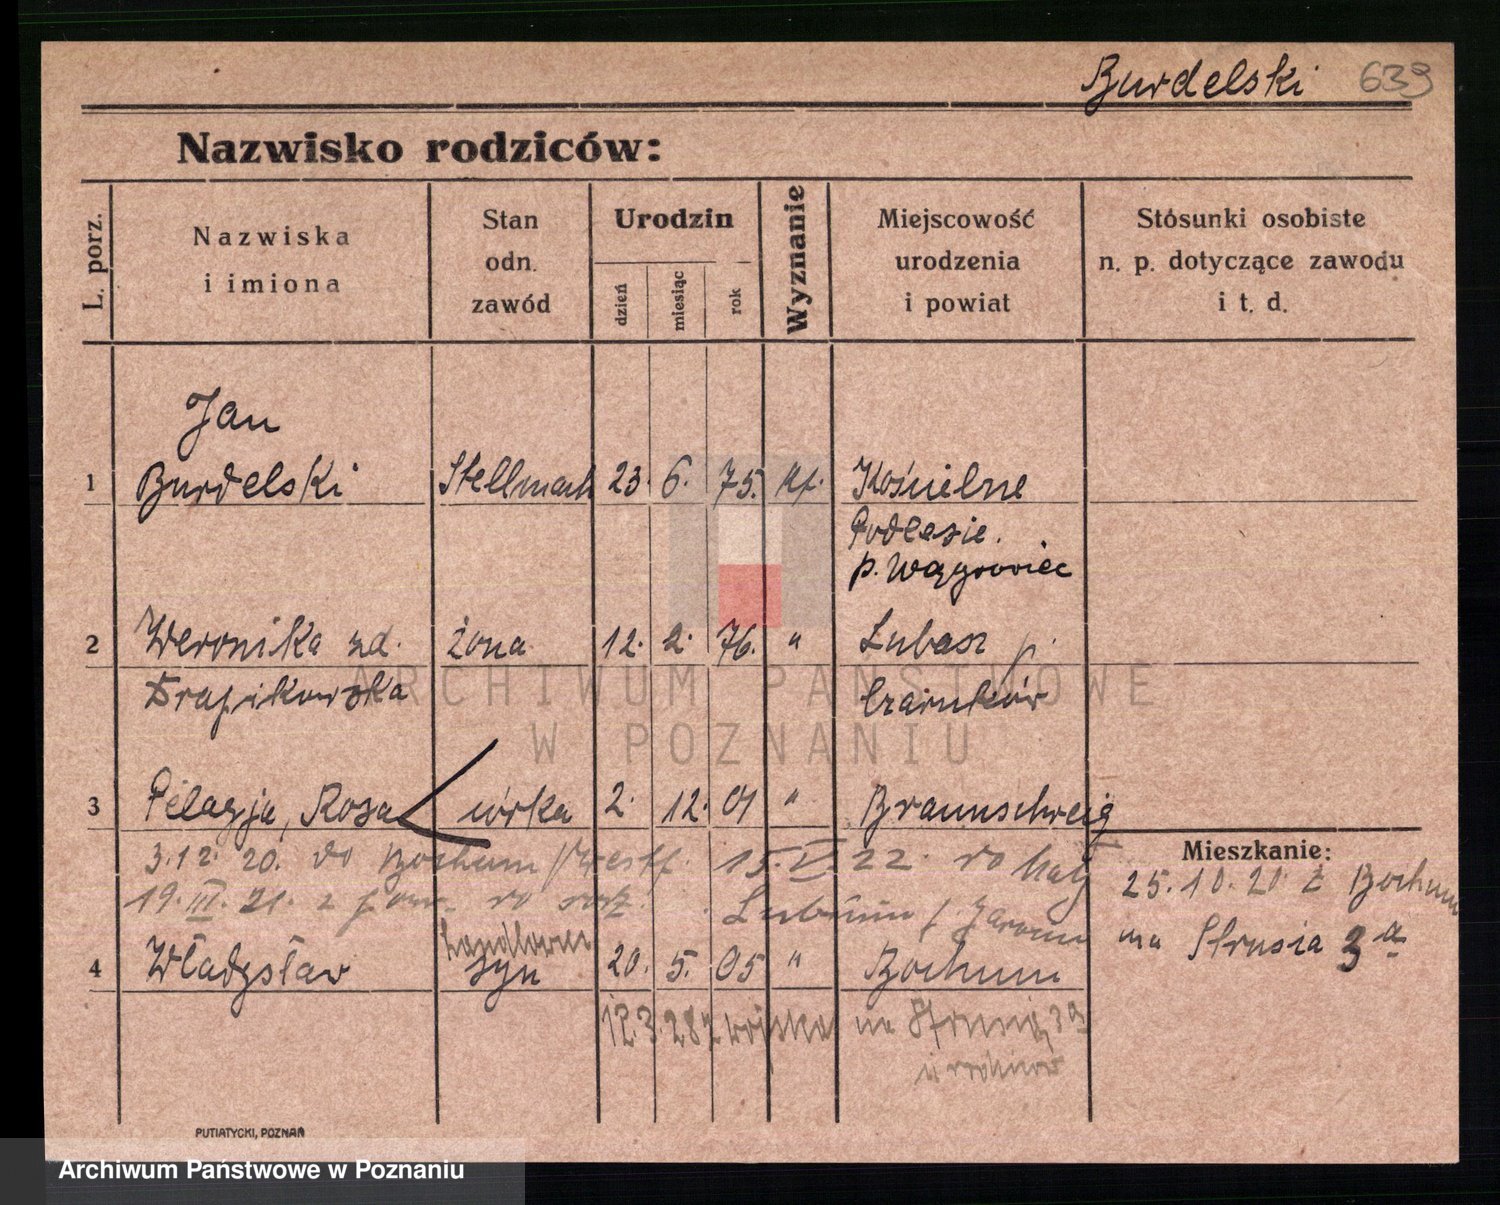 Burdelski 639
Nazwisko rodziców:
L. porz.
Nazwiska
i imiona
Stan
odn.
zawód
Urodzin
dzień
miesiąc
rok
Wyznanie
Miejscowość
urodzenia
i powiat
Stosunki osobiste
n. p. dotyczące zawodu
i t. d.
Jan
1 Burdelski Stellmach 23. 6. 75. kf. Kościelne
Podlesie.
p. Wągrowiec
2 Weronika zd. żona 12. 2. 76. " Lubasz p.
Drapikowska Czarnków
ARCHIWUM PAŃSTWOWE
W POZNANIU
3 Pelagja, Rosa córka 2. 12. 01 " Braunschweig
3.12. 20. do Bochum /Westf. 15. V. 22. do
19. III. 21. z do
handlowiec
4 Władysław syn 20. 5. 05 " Bochum
12.3.28 z wojska na Strusia 3a
Mieszkanie:
25. 10. 20 z Bochum
na Strusia 3a
PUTIATYCKI, POZNAŃ
Archiwum Państwowe w Poznaniu